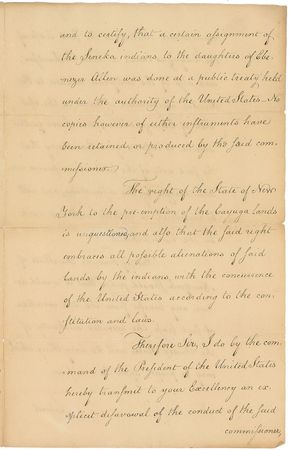 and to certify, that a certain assignment of
the Seneka indians to the daughters of Ebe-
nezer Allen was done at a public treaty held
under the authority of the United States. No
copies however of either instruments have
been retained, or produced by the said com-
missioner.
The right of the State of New
York to the pre-emption of the Cayuga lands
is unquestioned, and also that the said right
embraces all possible alienations of said
lands by the indians with the concurrence
of the United States according to the con-
stitution and laws.
Therefore Sir, I do by the com-
mand of the President of the United States
hereby transmit to your Excellency an ex-
plicit disavowal of the conduct of the said
commissioner,